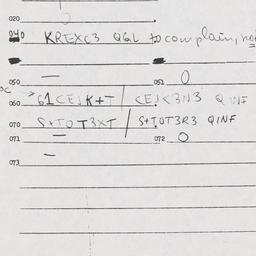 020
040 KREXC3 QGL to complain,
050 — 051 O
060 61CEJK+T / CEJK3N3 QINF
070 S+TOT3XT / S+TOT3R3 QINF
071 — 072 O
073 —